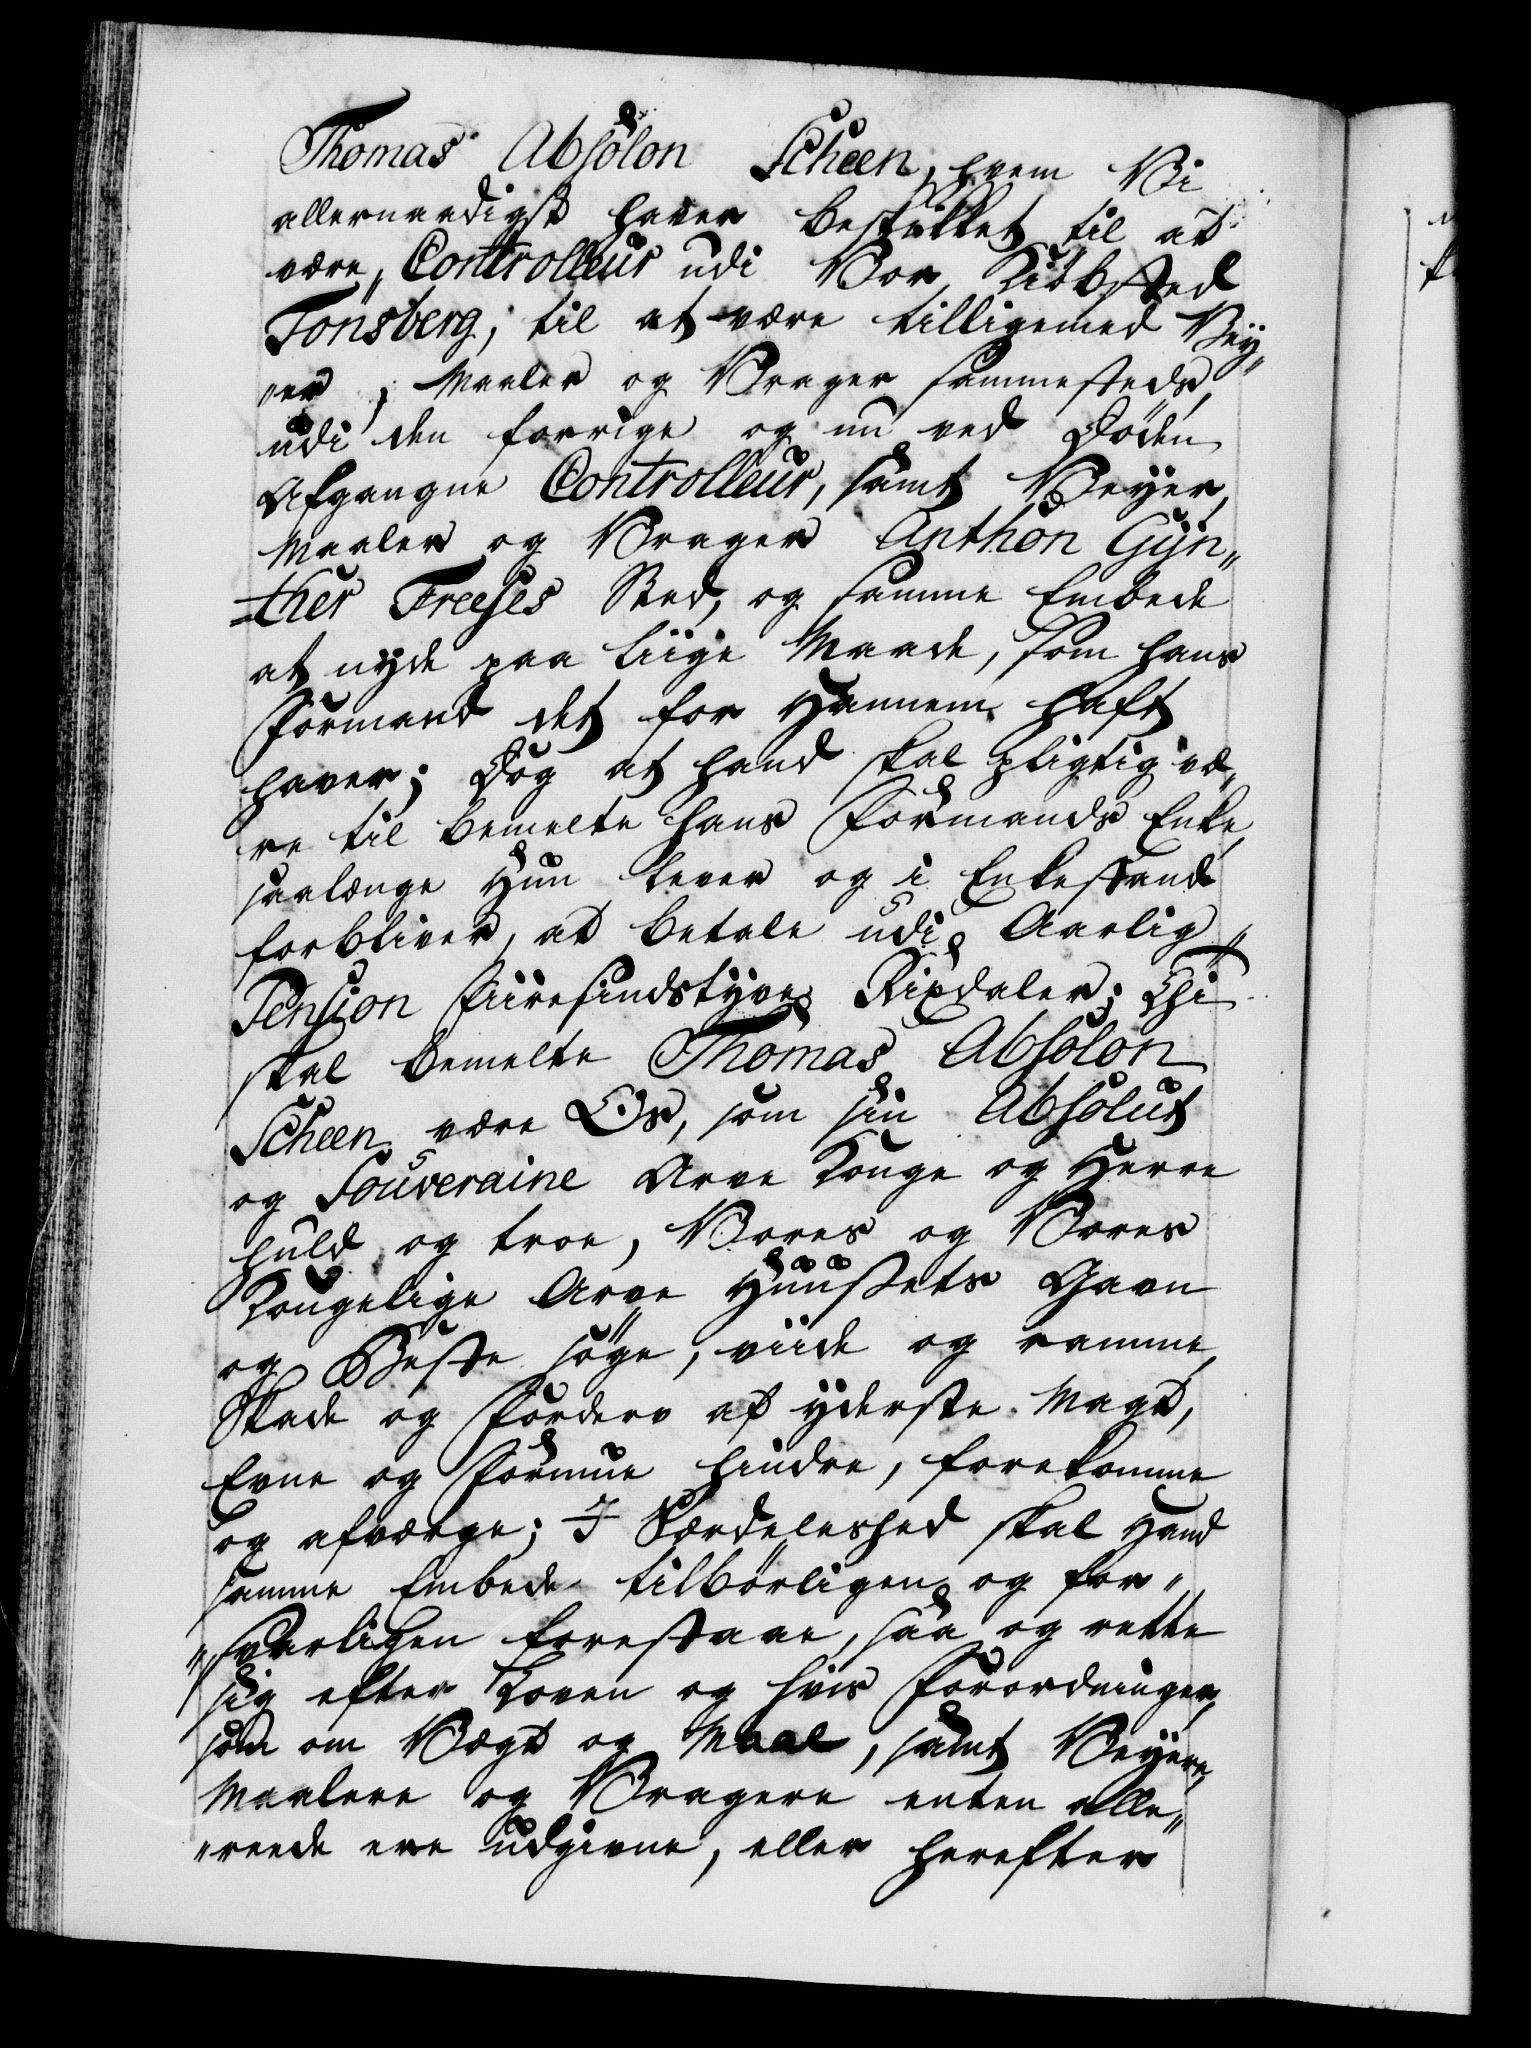 Thomas Absolon Scheen, hvem Vi
allernaadigst haver beskikket til at
være Controlleur udi Vor Kiøbsted
Tönsberg, til at være tilligemed Vey„
„er, Maaler og Vrager sammesteds,
udi den forrige og nu ved Döden
Afgangne Controlleur, samt Veyer,
Maaler og Vrager Anthon Gÿn„
„ther Freeses Sted, og samme Embede
at nyde paa liige Maade, som hans
Formand det for Hannem haft
haver; Dog at hand skal pligtig væ„
re til bemelte hans Formands Enke,
saalænge Hun lever og i Enkestand
forbliver, at betale udi Aarlig„
Pension Fiiresindstyve Rixdaler; Thi
skal bemelte Thomas Absolon
Scheen være Os, som sin Absolut
og Souveraine Arve Konge og Herre
huld og troe, Vores og Vores
Kongelige Arve Huusets Gavn
og Beste söge, viide og ramme,
Skade og Forderv af ÿderste Magt,
Evne og Formue hindre, forekomme
og afværge; I Særdeleshed skal Hand
samme Embede tilbörligen og for„
„svarligen forestaae, saa og rette
sig efter Loven og hvis Forordninger,
som om Vægt og Maal, samt Veyere,
Maalere og Vragere enten alle„
„reede ere udgivne, eller herefter